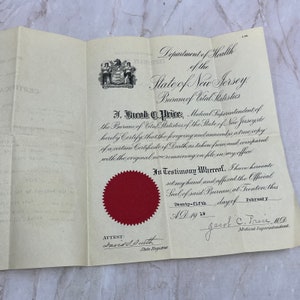 Department of Health
of the
State of New Jersey.
Bureau of Vital Statistics
I, Jacob C. Price, Medical Superintendent of
the Bureau of Vital Statistics of the State of New Jersey do
hereby Certify that the foregoing and annexed is a true copy
of a certain Certificate of Death as taken from and compared
with the original now remaining on file in my office.
In Testimony Whereof, I have hereunto
set my hand and affixed the Official
Seal of said Bureau, at Trenton this
Twenty-fifth day of February
A.D. 19
Jacob C. Price M.D.
Medical Superintendent.
ATTEST:
State Registrar